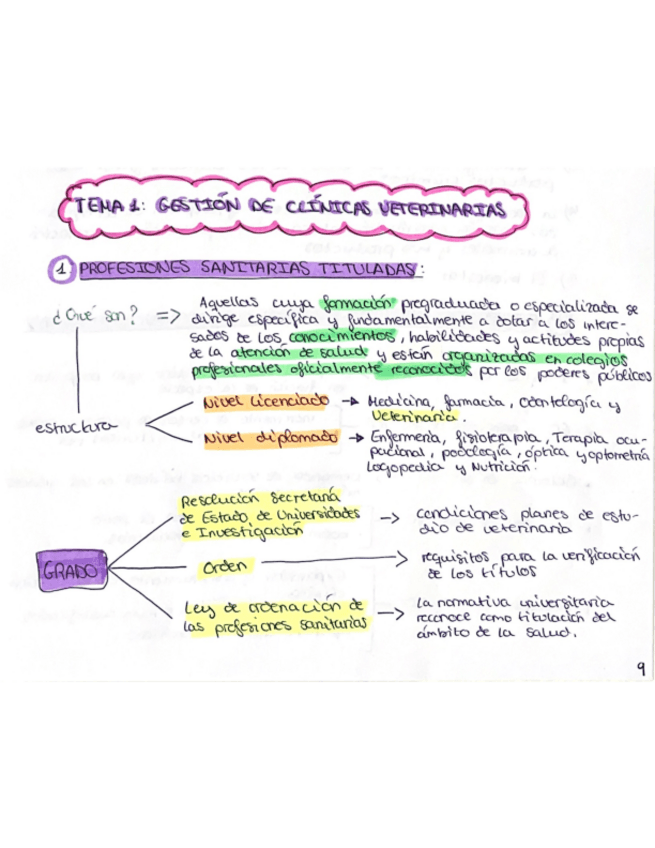 TEMA 1: GESTIÓN DE CLÍNICAS VETERINARIAS
1 PROFESIONES SANITARIAS TITULADAS:
¿Qué son? => Aquellas cuya formación pregraduada o especializada se
dirige específica y fundamentalmente a dotar a los intere-
sados de los conocimientos, habilidades y actitudes propias
de la atención de salud y están organizadas en colegios
profesionales oficialmente reconocidos por los poderes públicos
estructura
Nivel Licenciado → Medicina, farmacia, Odontología y
Veterinaria.
Nivel diplomado → Enfermería, fisioterapia, Terapia ocu-
pacional, podología, óptica y optometría
Logopedia y Nutrición.
GRADO
Resolución Secretaría
de Estado de Universidades
e Investigación
-> condiciones planes de estu-
dio de veterinaria
Orden -> requisitos para la verificación
de los títulos
Ley de ordenación de
las profesiones sanitarias
-> la normativa universitaria
reconoce como titulación del
ámbito de la salud.
9